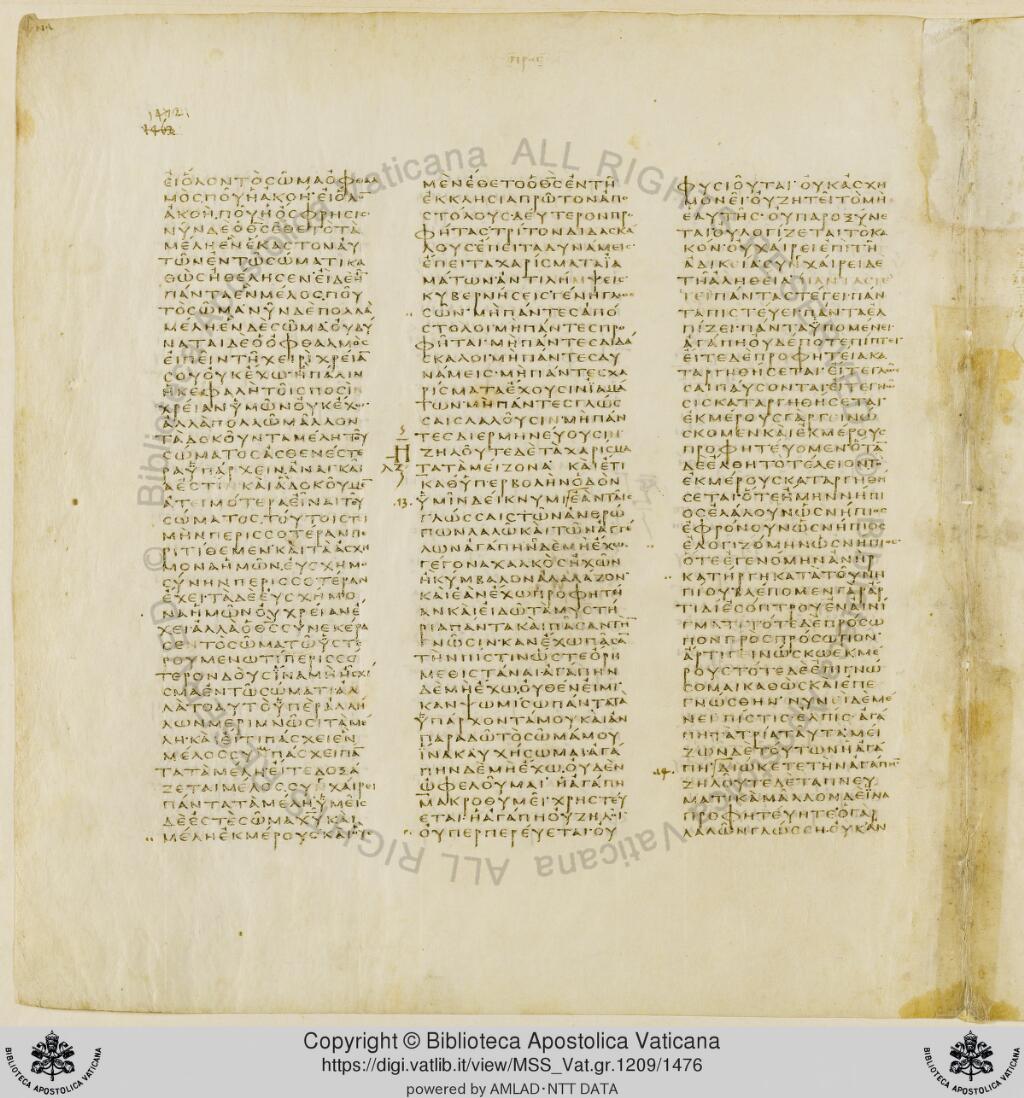 1472
ΕΙΟΛΟΝΤΟΣΩΜΑΟΦΘΑΛ
ΜΟΣΠΟΥΗΑΚΟΗ·ΕΙΟΛΟ
ΑΚΟΗ·ΠΟΥΗΟΣΦΡΗΣΙΣ
ΝΥΝΔΕΟΘΣΕΘΕΤΟΤΑ
ΜΕΛΗΕΝΕΚΑΣΤΟΝΑΥ
ΤΩΝΕΝΤΩΣΩΜΑΤΙΚΑ
ΘΩΣΗΘΕΛΗΣΕΝΕΙΔΕΗ
ΠΑΝΤΑΕΝΜΕΛΟΣΠΟΥ
ΤΟΣΩΜΑΝΥΝΔΕΠΟΛΛΑ
ΜΕΛΗΕΝΔΕΣΩΜΑΟΥΔΥ
ΝΑΤΑΙΔΕΟΟΦΘΑΛΜΟΣ
ΕΙΠΕΙΝΤΗΧΕΙΡΙΧΡΕΙΑ
ΣΟΥΟΥΚΕΧΩΗΠΑΛΙΝ
ΗΚΕΦΑΛΗΤΟΙΣΠΟΣΙΝ
ΧΡΕΙΑΝΥΜΩΝΟΥΚΕΧΩ
ΑΛΛΑΠΟΛΛΩΜΑΛΛΟΝ
ΤΑΔΟΚΟΥΝΤΑΜΕΛΗΤΟΥ
ΣΩΜΑΤΟΣΑΣΘΕΝΕΣΤΕ
ΡΑΥΠΑΡΧΕΙΝΑΝΑΓΚΑΙ
ΑΕΣΤΙΝΚΑΙΑΔΟΚΟΥΜΕ
ΑΤΕΙΜΟΤΕΡΑΕΙΝΑΙΤΟΥ
ΣΩΜΑΤΟΣΤΟΥΤΟΙΣΤΙ
ΜΗΝΠΕΡΙΣΣΟΤΕΡΑΝΠΕ
ΡΙΤΙΘΕΜΕΝΚΑΙΤΑΑΣΧΗ
ΜΟΝΑΗΜΩΝΕΥΣΧΗΜΟ
ΣΥΝΗΝΠΕΡΙΣΣΟΤΕΡΑΝ
ΕΧΕΙΤΑΔΕΕΥΣΧΗΜΟ
ΝΑΗΜΩΝΟΥΧΡΕΙΑΝΕ
ΧΕΙΑΛΛΑΟΘΣΣΥΝΕΚΕΡΑ
ΣΕΝΤΟΣΩΜΑΤΩΥΣΤΕ
ΡΟΥΜΕΝΩΤΙΠΕΡΙΣΣΟ
ΤΕΡΟΝΔΟΥΣΙΝΑΜΗΗΣΧΙ
ΣΜΑΕΝΤΩΣΩΜΑΤΙΑΛ
ΛΑΤΟΑΥΤΟΥΠΕΡΑΛΛΗ
ΛΩΝΜΕΡΙΜΝΩΣΙΤΑΜΕ
ΛΗΚΑΙΕΙΤΙΠΑΣΧΕΙΕΝ
ΜΕΛΟΣΣΥΝΠΑΣΧΕΙΠΑ
ΤΑΤΑΜΕΛΗΕΙΤΕΔΟΞΑ
ΖΕΤΑΙΜΕΛΟΣΣΥΝΧΑΙΡΕΙ
ΠΑΝΤΑΤΑΜΕΛΗΥΜΕΙΣ
ΔΕΕΣΤΕΣΩΜΑΧΥΚΑΙ
ΜΕΛΗΕΚΜΕΡΟΥΣΚΑΙΟΥΣ
ΜΕΝΕΘΕΤΟΟΘΣΕΝΤΗ
ΕΚΚΛΗΣΙΑΠΡΩΤΟΝΑΠΟ
ΣΤΟΛΟΥΣΔΕΥΤΕΡΟΝΠΡΟ
ΦΗΤΑΣΤΡΙΤΟΝΔΙΔΑΣΚΑ
ΛΟΥΣΕΠΕΙΤΑΔΥΝΑΜΕΙΣ
ΕΠΕΙΤΑΧΑΡΙΣΜΑΤΑΙΑ
ΜΑΤΩΝΑΝΤΙΛΗΜΨΕΙΣ
ΚΥΒΕΡΝΗΣΕΙΣΓΕΝΗΓΛΩΣ
ΣΩΝ·ΜΗΠΑΝΤΕΣΑΠΟ
ΣΤΟΛΟΙΜΗΠΑΝΤΕΣΠΡΟ
ΦΗΤΑΙΜΗΠΑΝΤΕΣΔΙΔΑ
ΣΚΑΛΟΙΜΗΠΑΝΤΕΣΔΥ
ΝΑΜΕΙΣ·ΜΗΠΑΝΤΕΣΧΑ
ΡΙΣΜΑΤΑΕΧΟΥΣΙΝΙΑΜΑ
ΤΩΝ·ΜΗΠΑΝΤΕΣΓΛΩΣ
ΣΑΙΣΛΑΛΟΥΣΙΝΜΗΠΑΝ
ΤΕΣΔΙΕΡΜΗΝΕΥΟΥΣΙΝ
ΖΗΛΟΥΤΕΔΕΤΑΧΑΡΙΣΜΑ
ΤΑΤΑΜΕΙΖΟΝΑ ΚΑΙΕΤΙ
ΚΑΘΥΠΕΡΒΟΛΗΝΟΔΟΝ
13. ΥΜΙΝΔΕΙΚΝΥΜΙΕΑΝΤΑΙΣ
ΓΛΩΣΣΑΙΣΤΩΝΑΝΘΡΩ
ΠΩΝΛΑΛΩΚΑΙΤΩΝΑΓΓΕ
ΛΩΝΑΓΑΠΗΝΔΕΜΗΕΧΩ
ΓΕΓΟΝΑΧΑΛΚΟΣΗΧΩΝ
ΗΚΥΜΒΑΛΟΝΑΛΑΛΑΖΟΝ
ΚΑΙΕΑΝΕΧΩΠΡΟΦΗΤΕΙ
ΑΝΚΑΙΕΙΔΩΤΑΜΥΣΤΗ
ΡΙΑΠΑΝΤΑΚΑΙΠΑΣΑΝΤΗ
ΓΝΩΣΙΝ·ΚΑΝΕΧΩΠΑΣΑ
ΤΗΝΠΙΣΤΙΝΩΣΤΕΟΡΗ
ΜΕΘΙΣΤΑΝΑΙΑΓΑΠΗΝ
ΔΕΜΗΕΧΩΟΥΘΕΝΕΙΜΙ
ΚΑΝΨΩΜΙΣΩΠΑΝΤΑΤΑ
ΥΠΑΡΧΟΝΤΑΜΟΥΚΑΙΑΝ
ΠΑΡΑΔΩΤΟΣΩΜΑΜΟΥ
ΙΝΑΚΑΥΧΗΣΩΜΑΙΑΓΑ
ΠΗΝΔΕΜΗΕΧΩΟΥΔΕΝ
ΩΦΕΛΟΥΜΑΙ ΗΑΓΑΠΗ
ΜΑΚΡΟΘΥΜΕΙ·ΧΡΗΣΤΕΥ
ΕΤΑΙ·ΗΑΓΑΠΗΟΥΖΗΛΟΙ
ΟΥΠΕΡΠΕΡΕΥΕΤΑΙ·ΟΥ
ΦΥΣΙΟΥΤΑΙ·ΟΥΚΑΣΧΗ
ΜΟΝΕΙΟΥΖΗΤΕΙΤΟΜΗ
ΕΑΥΤΗΣ·ΟΥΠΑΡΟΞΥΝΕ
ΤΑΙΟΥΛΟΓΙΖΕΤΑΙΤΟΚΑ
ΚΟΝ·ΟΥΧΑΙΡΕΙΕΠΙΤΗ
ΑΔΙΚΕΙΑΣΥΝΧΑΙΡΕΙΔΕ
ΤΗΑΛΗΘΕΙΑ
ΠΑΝΤΑΣΤΕΓΕΙ·ΠΑΝ
ΤΑΠΙΣΤΕΥΕΙ·ΠΑΝΤΑΕΛ
ΠΙΖΕΙ·ΠΑΝΤΑΥΠΟΜΕΝΕΙ
ΑΓΑΠΗΟΥΔΕΠΟΤΕΠΙΠΤΕΙ
ΕΙΤΕΔΕΠΡΟΦΗΤΕΙΑΚΑ
ΤΑΡΓΗΘΗΣΕΤΑΙ·ΕΙΤΕΓΛΩΣ
ΣΑΙΠΑΥΣΟΝΤΑΙ·ΕΙΤΕΓΝΩ
ΣΙΣΚΑΤΑΡΓΗΘΗΣΕΤΑΙ
ΕΚΜΕΡΟΥΣΓΑΡΓΕΙΝΩ
ΣΚΟΜΕΝΚΑΙΕΚΜΕΡΟΥΣ
ΠΡΟΦΗΤΕΥΟΜΕΝΟΤΑ
ΔΕΕΛΘΗΤΟΤΕΛΕΙΟΝΤΟ
ΕΚΜΕΡΟΥΣΚΑΤΑΡΓΗΘΗ
ΣΕΤΑΙ·ΟΤΕΗΜΗΝΝΗΠΙ
ΟΣΕΛΑΛΟΥΝΩΣΝΗΠΙΟΣ
ΕΦΡΟΝΟΥΝΩΣΝΗΠΙΟΣ
ΕΛΟΓΙΖΟΜΗΝΩΣΝΗΠΙΟΣ
ΟΤΕΓΕΓΟΝΟΜΗΝΑΝΗΡ
ΚΑΤΗΡΓΗΚΑΤΑΤΟΥΝΗ
ΠΙΟΥΒΛΕΠΟΜΕΝΓΑΡΑΡ
ΤΙΔΙΕΣΟΠΤΡΟΥΕΝΑΙΝΙ
ΓΜΑΤΙΤΟΤΕΔΕΠΡΟΣΩ
ΠΟΝΠΡΟΣΠΡΟΣΩΠΟΝ·
ΑΡΤΙΓΕΙΝΩΣΚΩΕΚΜΕ
ΡΟΥΣΤΟΤΕΔΕΕΠΙΓΝΩ
ΣΟΜΑΙΚΑΘΩΣΚΑΙΕΠΕ
ΓΝΩΣΘΗΝ·ΝΥΝΕΙΔΕΜΕ
ΝΕΙΠΙΣΤΙΣ·ΕΛΠΙΣ·ΑΓΑ
ΠΗΤΑΤΡΙΑΤΑΥΤΑΜΕΙ
ΖΩΝΔΕΤΟΥΤΩΝΗΑΓΑ
14. ΠΗΔΙΩΚΕΤΕΤΗΝΑΓΑΠΗ
ΖΗΛΟΥΤΕΔΕΤΑΠΝΕΥ
ΜΑΤΙΚΑΜΑΛΛΟΝΔΕΙΝΑ
ΠΡΟΦΗΤΕΥΗΤΕΟΓΑΡ
ΛΑΛΩΝΓΛΩΣΣΗΟΥΚΑΝ
© Biblioteca Apostolica Vaticana ALL RIGHTS
Copyright © Biblioteca Apostolica Vaticana
https://digi.vatlib.it/view/MSS_Vat.gr.1209/1476
powered by AMLAD·NTT DATA
BIBLIOTECA APOSTOLICA VATICANA
BIBLIOTECA APOSTOLICA VATICANA